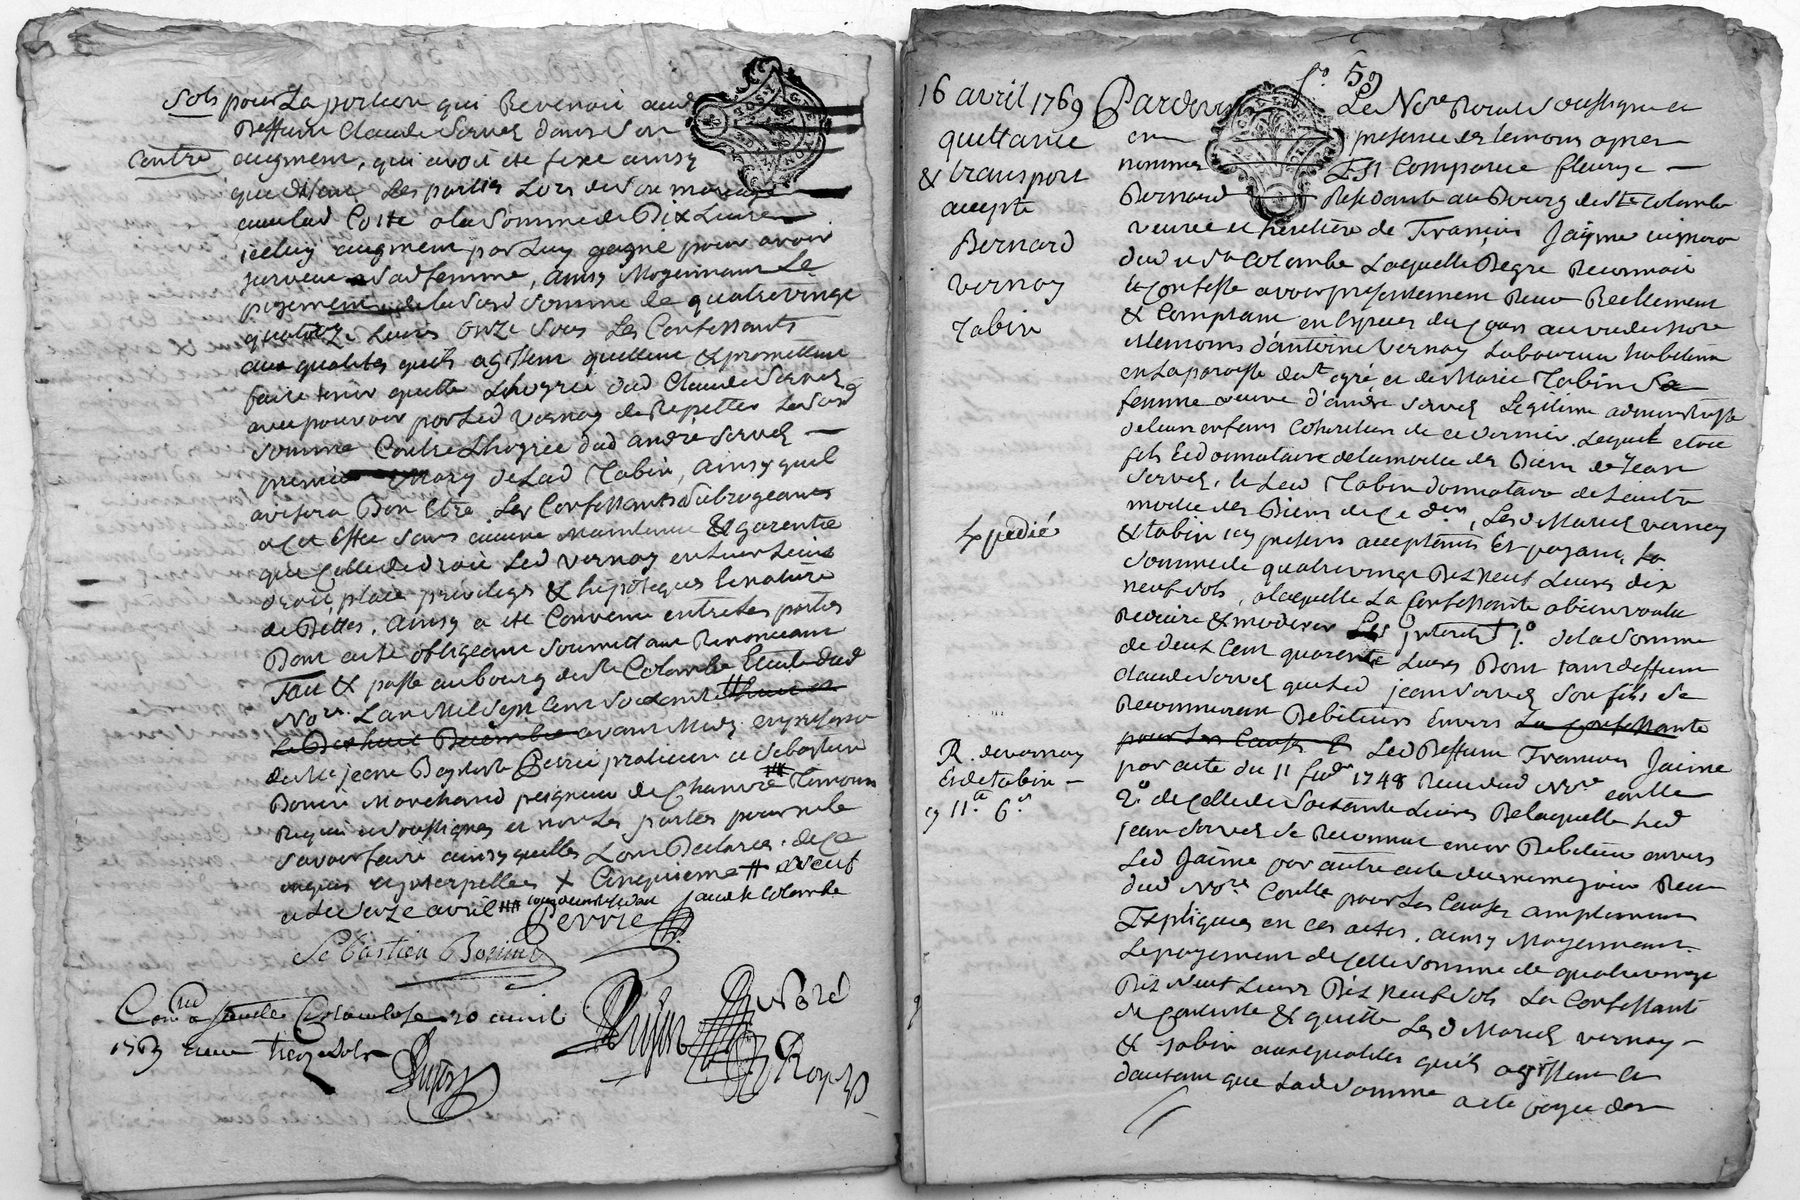 Sols pour La portion qui Revenoit aud
Deffunt Claude Servel dans Son
Contre augment, qui avoit eté fixé ainsy
que disent Les parties Lors de Son mariage
avec lad Coste a la Somme de Dix Livres
icelluy augment par Luy gagné pour avoir
Survecu a Sad femme, ainsy Moyennant Le
payement de la Susd Somme de quatre vingt
quatorze Livres onze Sous Les Confessants
aux qualités quils agissent quittent & promettent
faire tenir quitte L'hoyrie dud Claude Servel
avec pouvoir par Led Vernay de Repetter La Susd
Somme Contre L'hoyrie dud andré Servel
premier Mary de Lad Tabin, ainsy quil
avisera Bon Etre Les Confessants Subrogeants
a Cet Effet Sans aucune Maintenue & garentie
que Celle de droit Led Vernay en Leur Lieu
droit, place privileges & hipoteques
de Dettes. ainsy a eté Convenu entre Les parties
Dont acte obligeant Soumettant Renonceant
fait & passé au bourg de Ste Colombe Etude dud
Nore. L'an Mil Sept Cent Soixante
Le Dix huit Decembre avant Midy en presence
de Me jean Baptiste Perrie praticien et Sebastien
Bonin Marchand peigneur de Chanvre Temoins
Requis et Soussignés et non Les parties pour ne le
Savoir faire ainsy qu'elles L'ont Declaré. de Ce
enquis et interpellés x Cinquieme # neuf
et Le onze avril
Perrie
Sebastien Bonin
Con a Sainte Colombe Le 20 avril
1769 Recu treize sols
16 avril 1769
quittance
& transport
accepté
Bernard
Vernay
Tabin
Expedié
R. de vernay
Et de tabin
9 11 6
fo 59
Pardevant Le Nore Royal Soussigné et
en presence des temoins apres
nommés Est Comparue fleurye
Bernard Residante au Bourg de Ste Colombe
veuve et heritiere de François Jayme vigneron
dud. Ste Colombe Laquelle De gré Reconnoit
& Confesse avoir presentement Receu Reellement
& Comptant en Especes du Cours au vu de Nore
et temoins d'antoine Vernay Laboureur habitant
en La paroisse de St Cyr et de Marie Tabin Sa
femme veuve d'andré Servel Legitime administratrice
de Leurs enfans Coheritiers de ce dernier. Lequel etoit
fils Et donnataire de la moitié des Biens de Jean
Servel, & Lad Tabin donnataire de L'autre
moitié des Biens de Ce der, Lesd Mariés Vernay
& tabin icy presents acceptants Et payant, La
Somme de quatre vingt Dix Neuf Livres dix
neuf Sols, a laquelle La Confessante a bien voulu
Reduire & moderer Les Interets 1o. de la Somme
de deux Cent quarente Livres Dont tant deffunt
Claude Servel que Led jean Servel Son fils Se
Reconnurent Debiteurs Envers La Confessante
pour Les Causes Led Deffunt François Jaime
par acte du 11 1748 Receu dud Nore
2o de Celle de Soixante Livres De laquelle Led
jean Servel Se Reconnut encor Debiteur envers
Led Jaime par autre acte du meme jour Receu
dud Nore pour Les Causes amplement
Expliquées en ces actes, ainsy Moyennant
Le payement de Celle Somme de quatre vingt
Dix Neuf Livres Dix Neuf Sols La Confessante
Se Contente & quitte Lesd Mariés Vernay
& tabin aux qualités quils agissent et
d'autant que Lad Somme a eté payée des